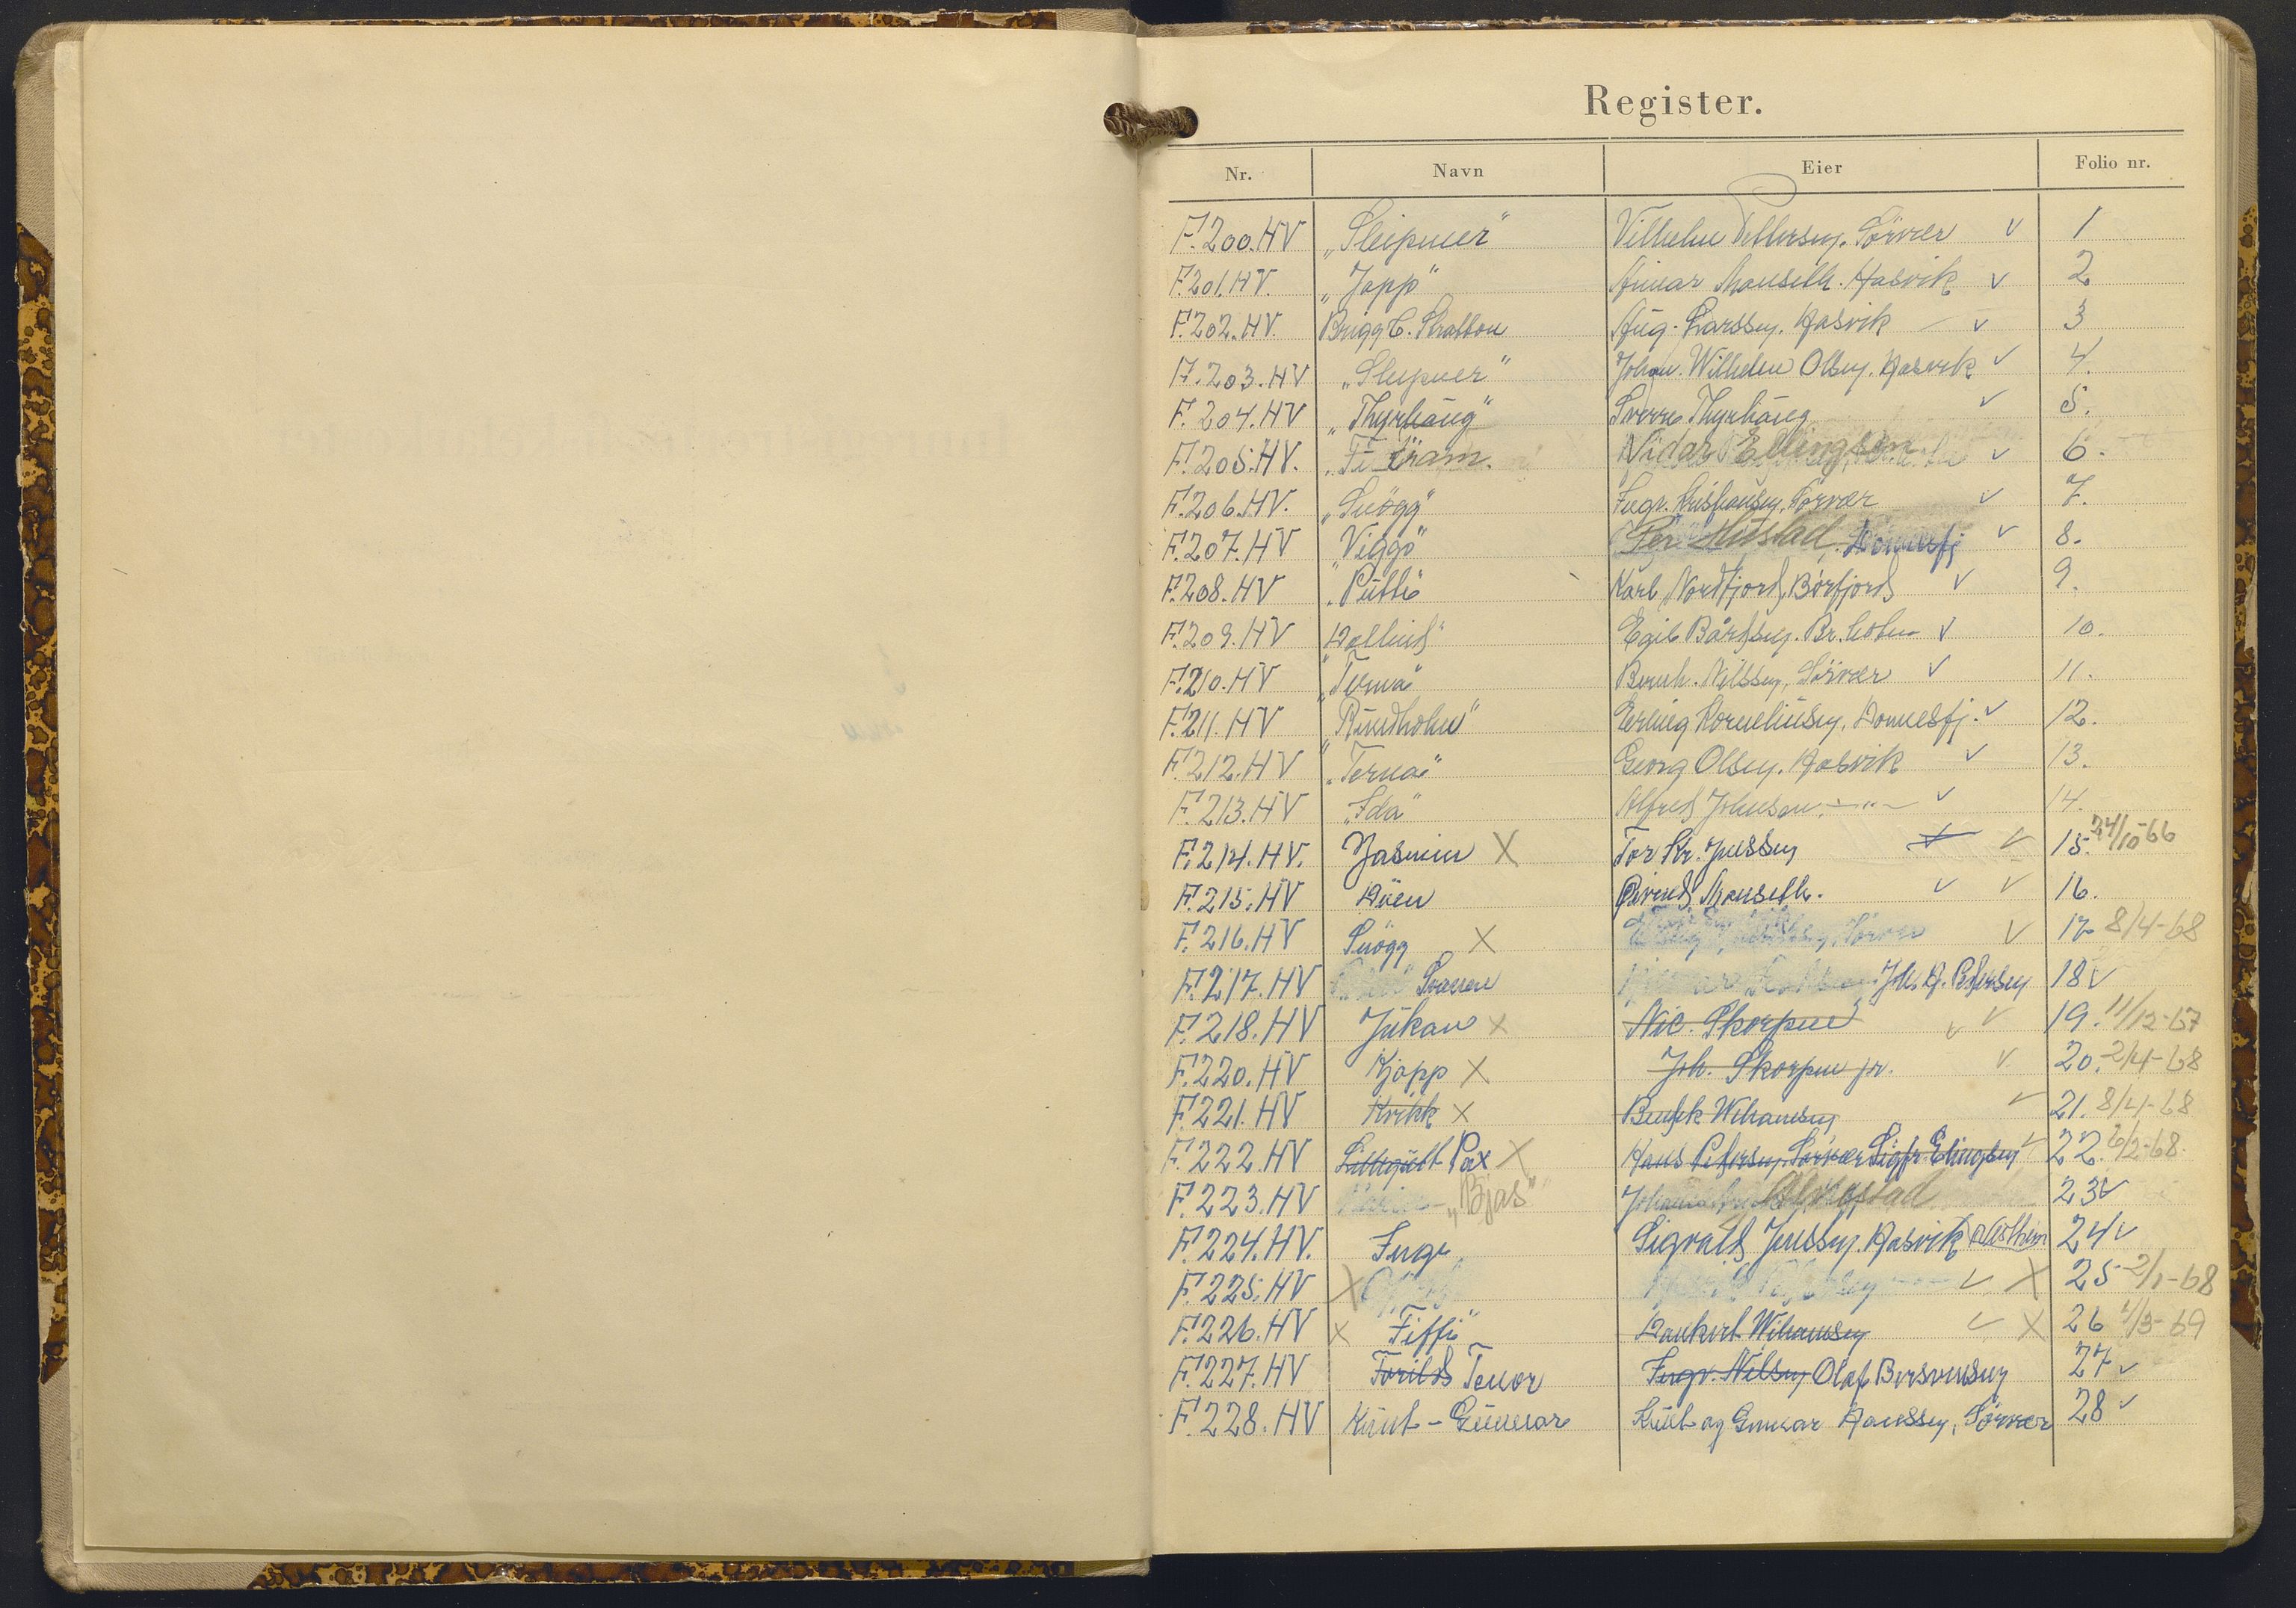 Register.
Nr. Navn Eier Folio nr.
F.200.HV „Sleipner" Vilhelm Pettersen. Sörvær v 1
F.201.HV. „Japp" Einar Mauseth. Hasvik v 2
F.202.HV. Brigg C. Stratton Aug. Larssen. Hasvik v 3
F.203.HV „Sleipner" Johan. Wilhelm Olsen. Hasvik v 4.
F.204.HV „Thyrhaug" Sverre Thyrhaug v 5.
F.205.HV. „Ti tram. Nidar Ellingsen v 6.
F.206.HV. „Snögg" Ingv. Kristiansen, Sörvær v 7.
F.207.HV „Viggo" Per Hustad. Dönnesfj v 8.
F.208.HV „Putti" Karl Nordfjord, Börfjord v 9.
F.209.HV „Delluch" Egil Bårdsen. Br.holm v 10.
F.210.HV „Terna" Bernh. Nilssen, Sörvær v 11.
F.211.HV „Rundholm" Erling Korneliusen, Dönnesfj. v 12.
F.212.HV „Terna" Georg Olsen. Hasvik v 13.
F.213.HV „Ida" Alfred Johnsen — " — v 14.
F.214.HV. Jasmin X Tor Kr. Jenssen v v 15. 24/10-66
F.215.HV Duen Öivind Mauseth. v v 16.
F.216.HV Snögg X Sörvær v 17 8/4-68
F.217.HV Svanen Joh. H. Pedersen 18 v
F.218.HV Jukan X Nic. Skorpen v v 19. 11/12-67
F.220.HV Kjapp X Joh. Skorpen jr. v 20. 2/4-68
F.221.HV Kvikk X Bendik Wiliamsen v 21. 8/4-68
F.222.HV Lillegutt Pax X Hans Pedersen, Sörvær Sigfr. Elingsen v 22. 6/2-68.
F.223.HV „Bjas" 23 v
F.224.HV. Inga Sigvald Jenssen. Hasvik 24 v
F.225.HV X v X 25 2/1-68
F.226.HV X „Fiffi" Dankert Wiliamsen v X 26 4/3-69
F.227.HV Torild Tenor Ingv. Nilsen Olaf Bersvendsen 27 v
F.228.HV Knut - Gunnar Knut og Gunnar Hanssen, Sörvær 28 v